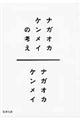 ナガオカ
ケンメイ
の考え
ナガオカ
ケンメイ
新潮文庫